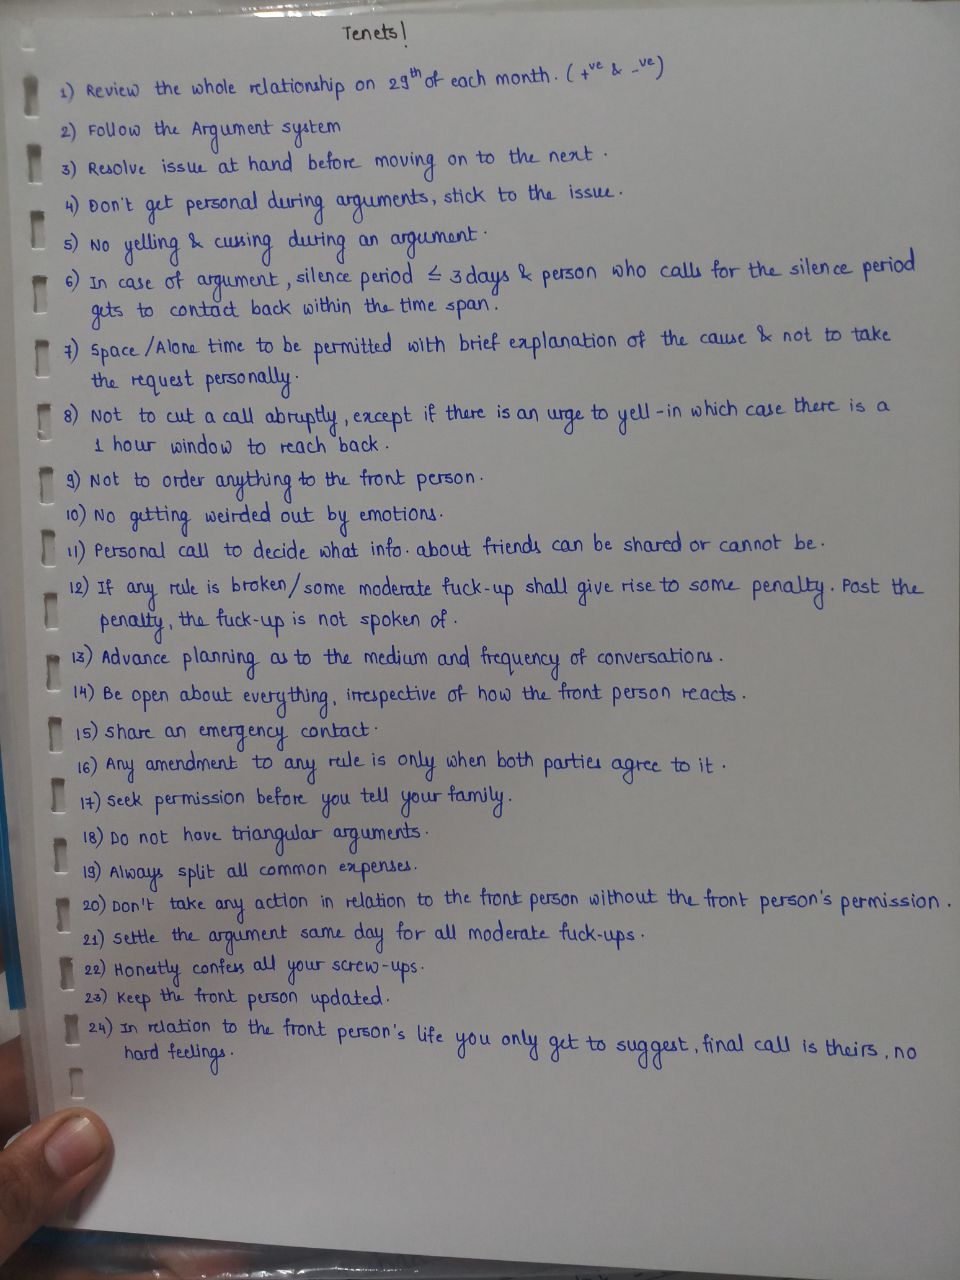 Tenets!
1) Review the whole relationship on 29th of each month. (+ve & -ve)
2) Follow the Argument system
3) Resolve issue at hand before moving on to the next.
4) Don't get personal during arguments, stick to the issue.
5) No yelling & cussing during an argument.
6) In case of argument, silence period ≤ 3 days & person who calls for the silence period
gets to contact back within the time span.
7) Space/Alone time to be permitted with brief explanation of the cause & not to take
the request personally.
8) Not to cut a call abruptly, except if there is an urge to yell-in which case there is a
1 hour window to reach back.
9) Not to order anything to the front person.
10) No getting weirded out by emotions.
11) Personal call to decide what info. about friends can be shared or cannot be.
12) If any rule is broken/some moderate fuck-up shall give rise to some penalty. Post the
penalty, the fuck-up is not spoken of.
13) Advance planning as to the medium and frequency of conversations.
14) Be open about everything, irrespective of how the front person reacts.
15) Share an emergency contact.
16) Any amendment to any rule is only when both parties agree to it.
17) Seek permission before you tell your family.
18) Do not have triangular arguments.
19) Always split all common expenses.
20) Don't take any action in relation to the front person without the front person's permission.
21) Settle the argument same day for all moderate fuck-ups.
22) Honestly confess all your screw-ups.
23) Keep the front person updated.
24) In relation to the front person's life you only get to suggest, final call is theirs, no
hard feelings.